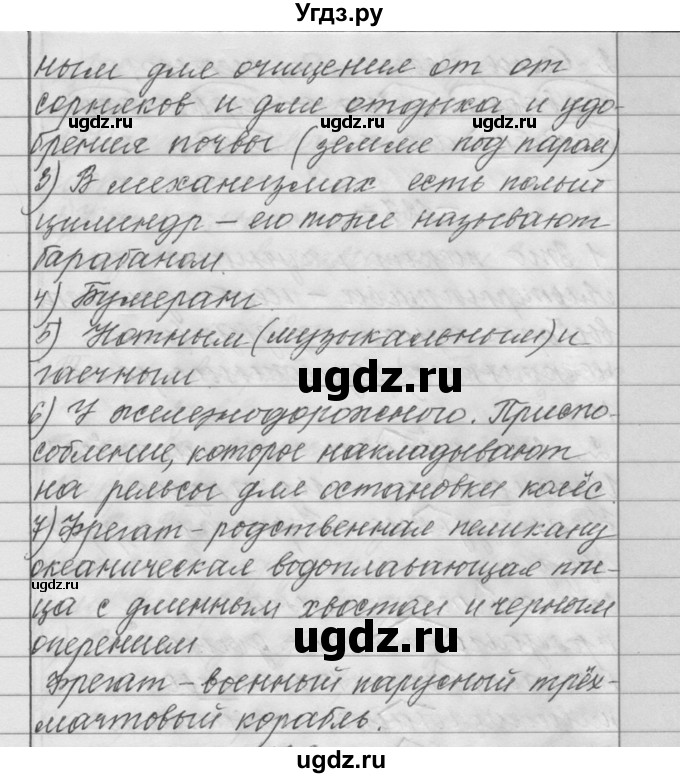 Угдз.ру
ным для очищения от от
сорняков и для отдыха и удо-
ugdz.ru ugdz.ru ugdz.ru
брения почвы (земле под паром)
3) В механизмах есть полый
цилиндр – его тоже называют
барабаном.
4) Бумеранг.
5) Нотным (музыкальным) и
гаечным
ugdz.ru
6) У железнодорожного. Приспо-
собление, которое накладывают
на рельсы для остановки колёс.
7) Фрегат – родственная пеликану
океаническая водоплавающая пти-
ugdz.ru
ца с длинным хвостом и черным
оперением
ugdz.ru
Фрегат – военный парусный трёх-
мачтовый корабль.
ugdz.ru ugdz.ru ugdz.ru